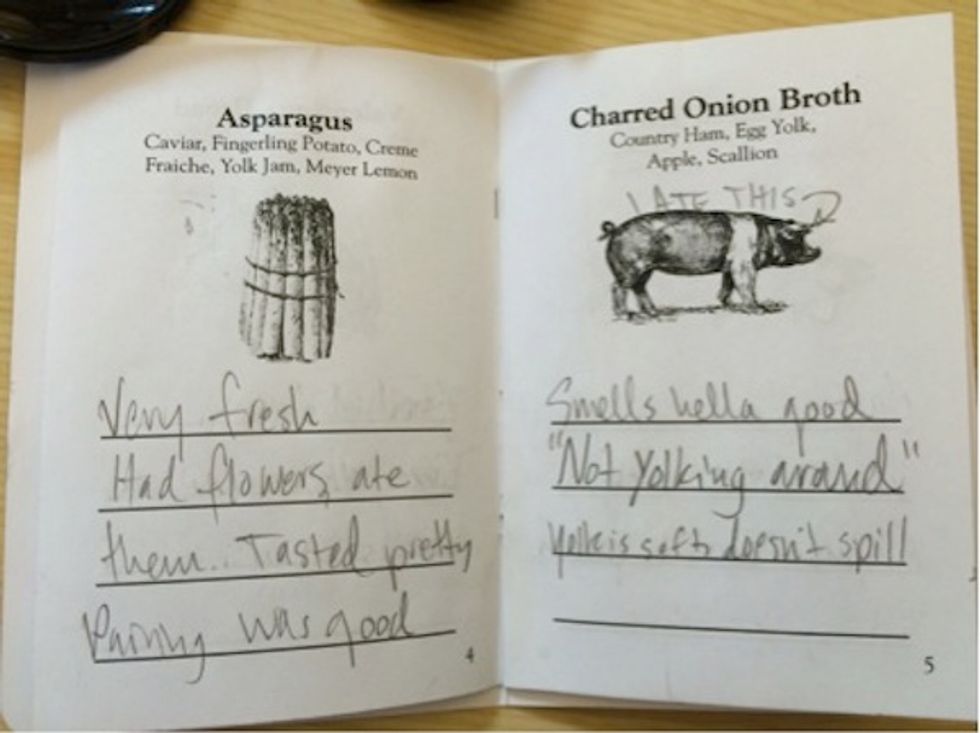 Asparagus
Caviar, Fingerling Potato, Creme
Fraiche, Yolk Jam, Meyer Lemon
Very fresh
Had flowers, ate
them. Tasted pretty
Pairing was good
4
Charred Onion Broth
Country Ham, Egg Yolk,
Apple, Scallion
I ATE THIS
Smells hella good
"Not Yolking around"
Yolk is soft, doesn't spill
5